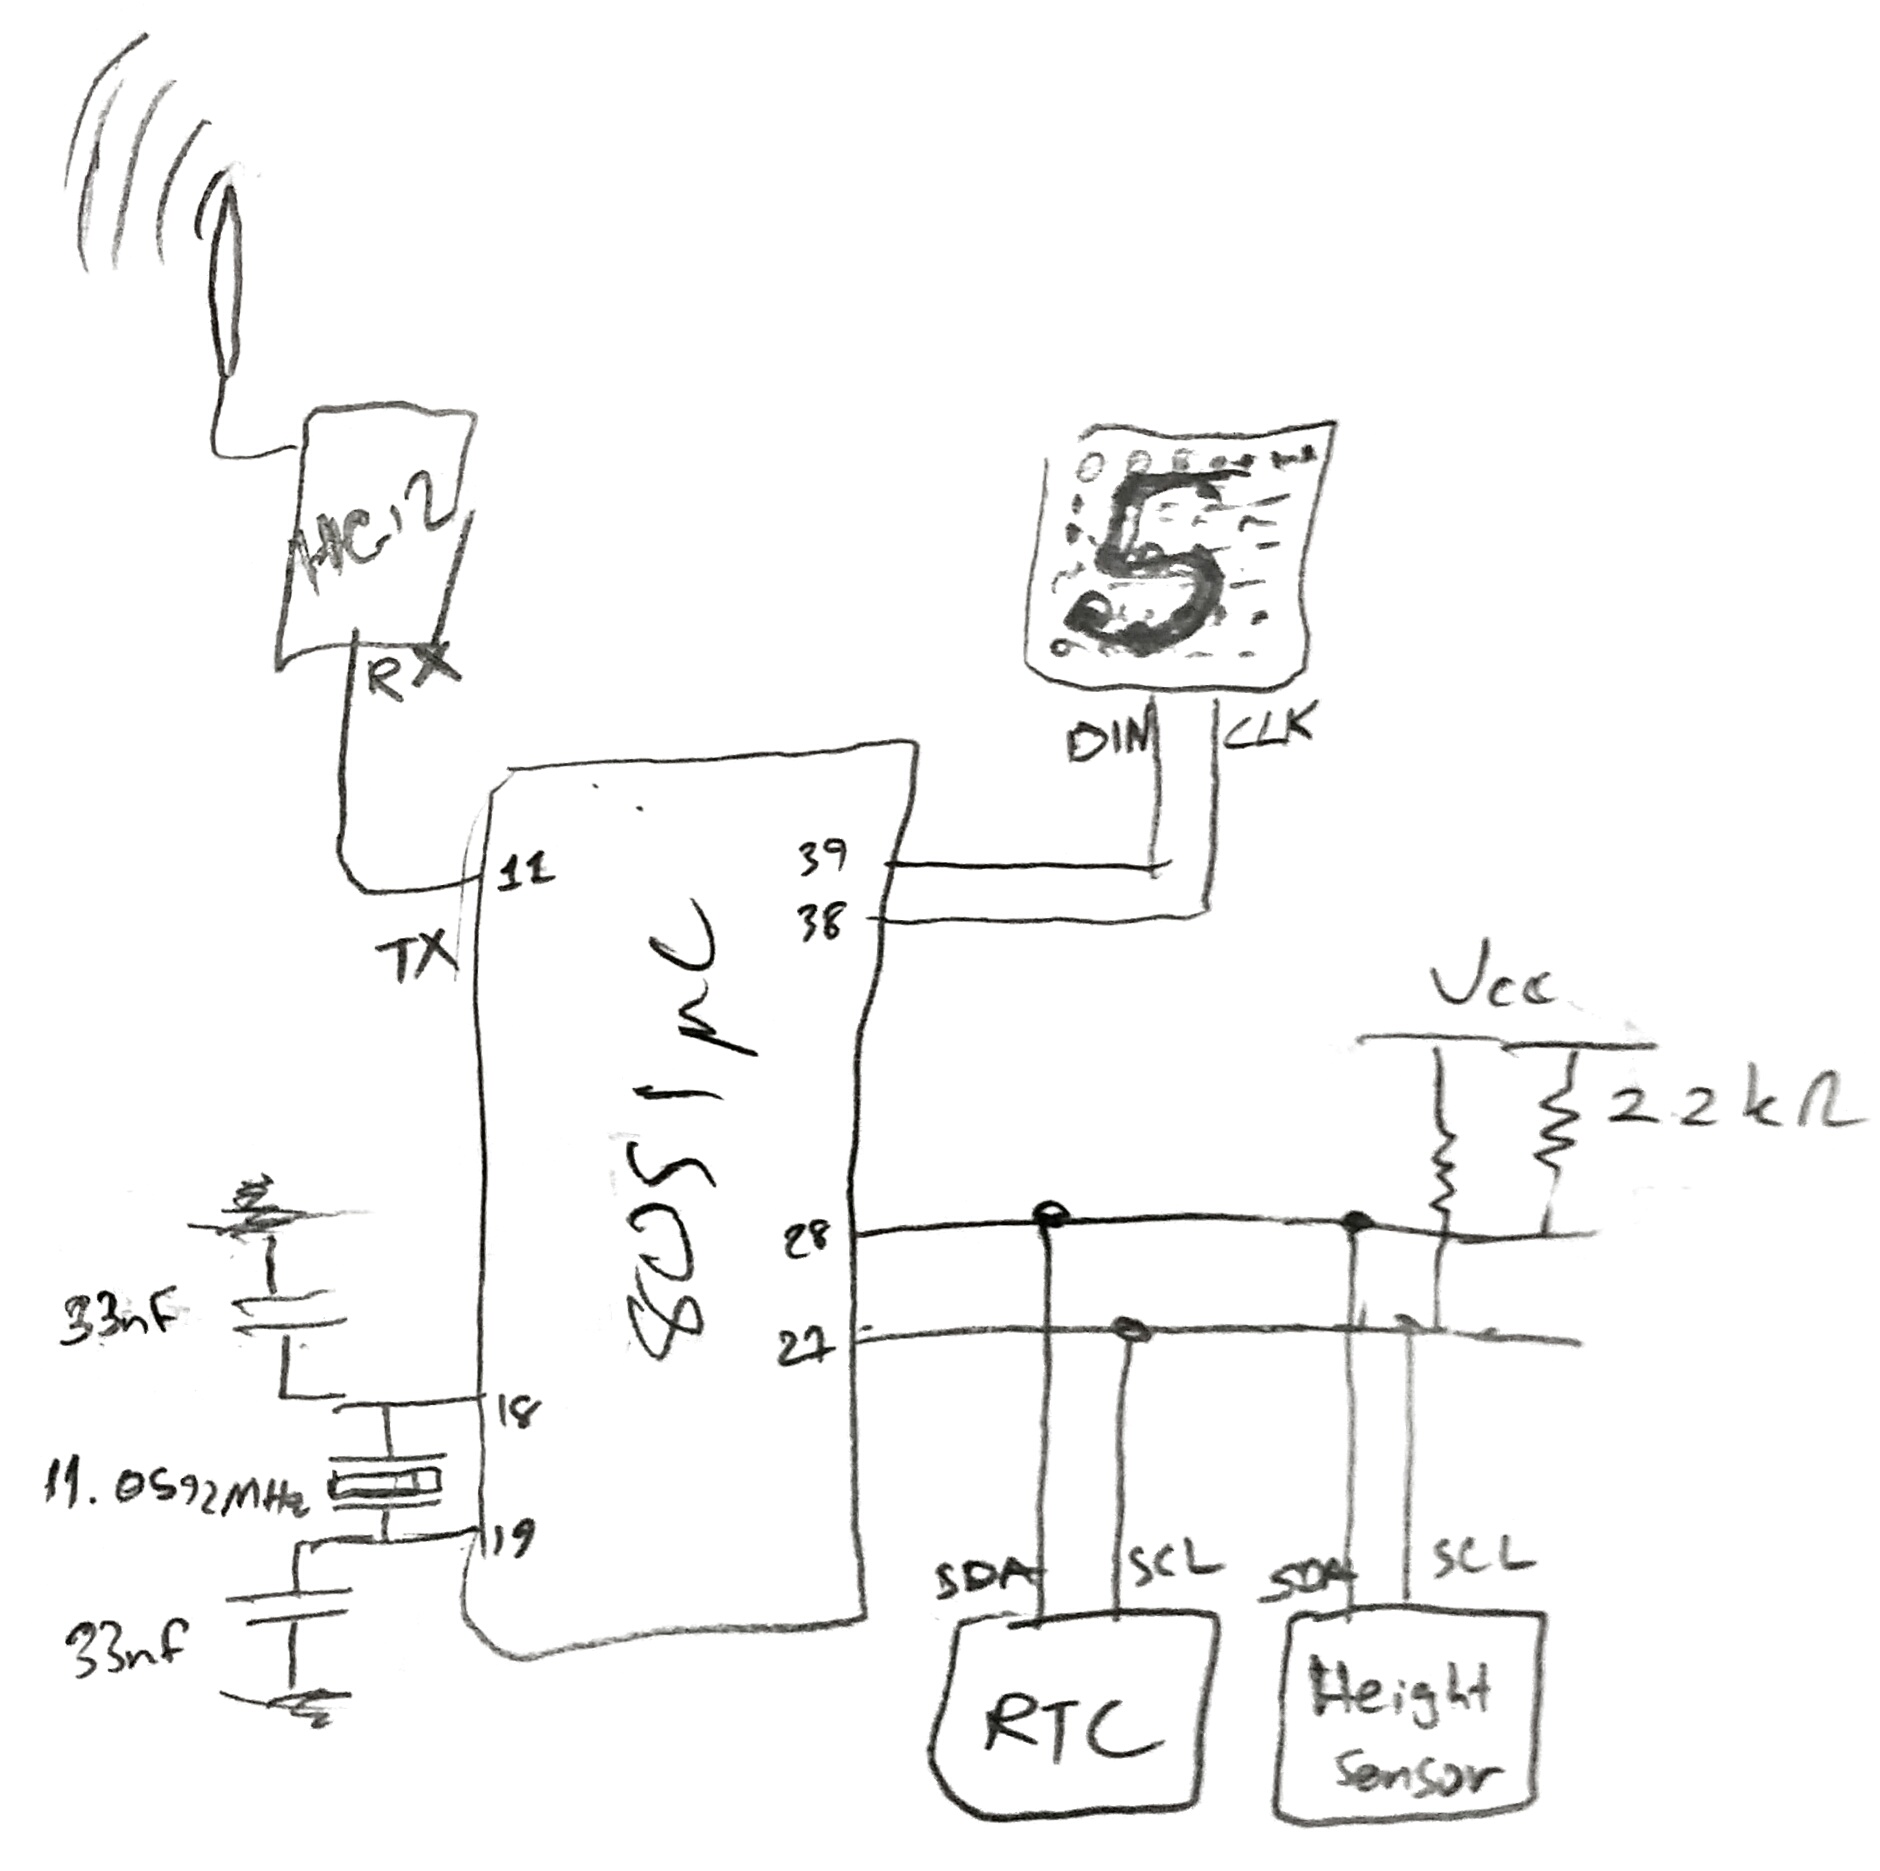 HC-12
RX
5
DIN
CLK
11
39
38
TX
8051 μC
Vcc
2.2kΩ
28
27
33nF
18
11.0592MHz
19
33nf
SDA
SCL
SDA
SCL
RTC
Height
Sensor